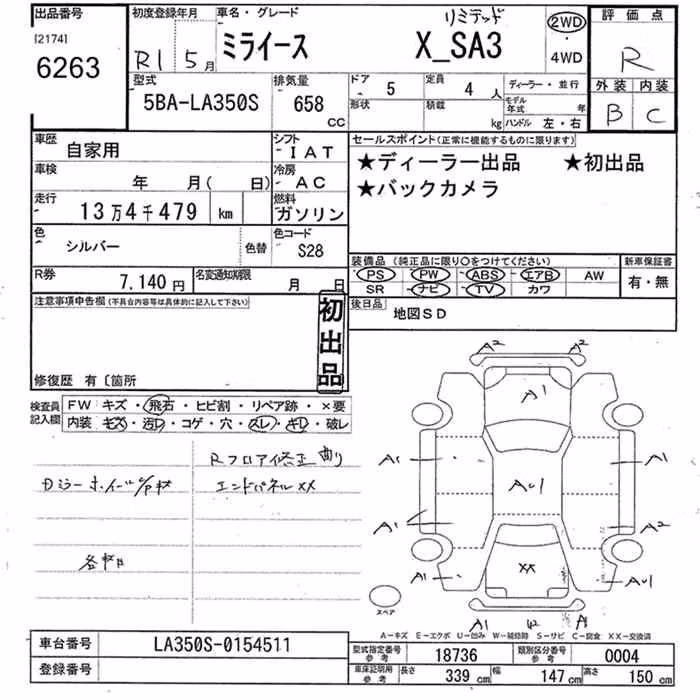 出品番号 初度登録年月 車名・グレード リミテッド 2WD 評価点
[2174] R1 5月 ミライース X_SA3 ・ R
6263 4WD
型式 排気量 ドア 5 定員 4人 ディーラー・並行 外装 内装
5BA-LA350S 658 cc 形状 積載 kg モデル年式 年 B C
ハンドル 左・右
車歴 自家用 シフト IAT セールスポイント(正常に機能するものに限ります)
車検 年 月( 日) 冷房 AC ★ディーラー出品 ★初出品
走行 13万4千479 km 燃料 ガソリン ★バックカメラ
色 シルバー 色替 色コード S28
装備品(純正品に限り○をつけてください) 新車保証書
R券 7,140円 名変通知期限 月 日 PS PW ABS エアB AW 有・無
SR ナビ TV カワ
注意事項申告欄(不具合内容等は具体的に記入して下さい) 初出品 後日品 地図SD
修復歴 有〔箇所
検査員記入欄 FW キズ・飛石・ヒビ割・リペア跡・×要
内装 キズ・汚れ・コゲ・穴・スレ・キレ・破レ
Rフロア修正
エンドパネルXX
A2 A2
A1
A1 A1
AU1
A1 A2
XX
A1 AU1
スペア
A1 W A1
A-キズ E-エクボ U-凹み W-補修跡 S-サビ C-腐食 XX-交換済
車台番号 LA350S-0154511 型式指定番号 参考 18736 類別区分番号 参考 0004
登録番号 車庫証明用 参考 長さ 339 cm 幅 147 cm 高さ 150 cm